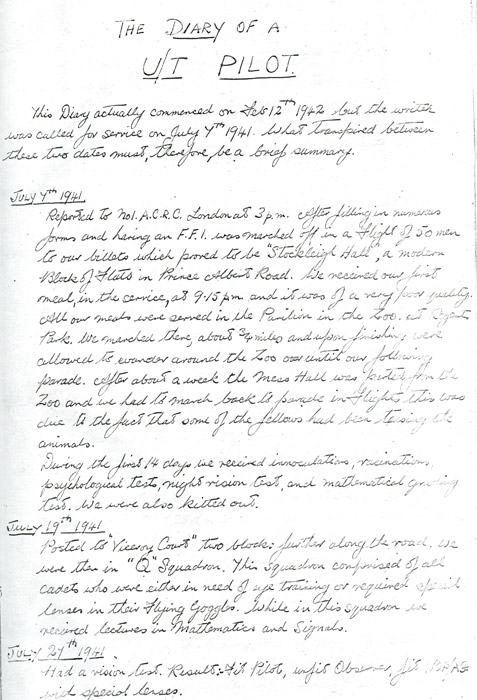 THE DIARY OF A
U/T PILOT.
This Diary actually commenced on Feb 12th 1942 but the writer
was called for service on July 7th 1941. What transpired between
these two dates must, therefore, be a brief summary.
JULY 7th 1941.
Reported to No1. A.C.R.C. London at 3 p.m. After filling in numerous
forms and having an F.F.I. was marched off in a Flight of 50 men
to our billets which proved to be "Stockleigh Hall", a modern
Block of Flats in Prince Albert Road. We received our first
meal, in the service, at 9-15 pm and it was of a very poor quality.
All our meals were served in the Pavilion in the Zoo. at Regents
Park. We marched there, about 3/4 miles and upon finishing were
allowed to wander around the Zoo until our following
parade. After about a week the Mess Hall was from the
Zoo and we had to march back to parade in Flights this was
due to the fact that some of the fellows had been teasing the
animals.
During the first 14 days we received innoculations, vacinations,
psychological tests, night vision test, and mathematical grading
test. We were also kitted out.
JULY 19th 1941
Posted to "Viceroy Court" two blocks further along the road. We
were then in "Q" Squadron. This Squadron comprised of all
cadets who were either in need of eye training or required special
lenses in their Flying Goggles. While in this squadron we
received lectures in Mathematics and Signals.
JULY 27th 1941.
Had a vision test. Result: Fit Pilot, unfit Observer, fit
with special lenses.